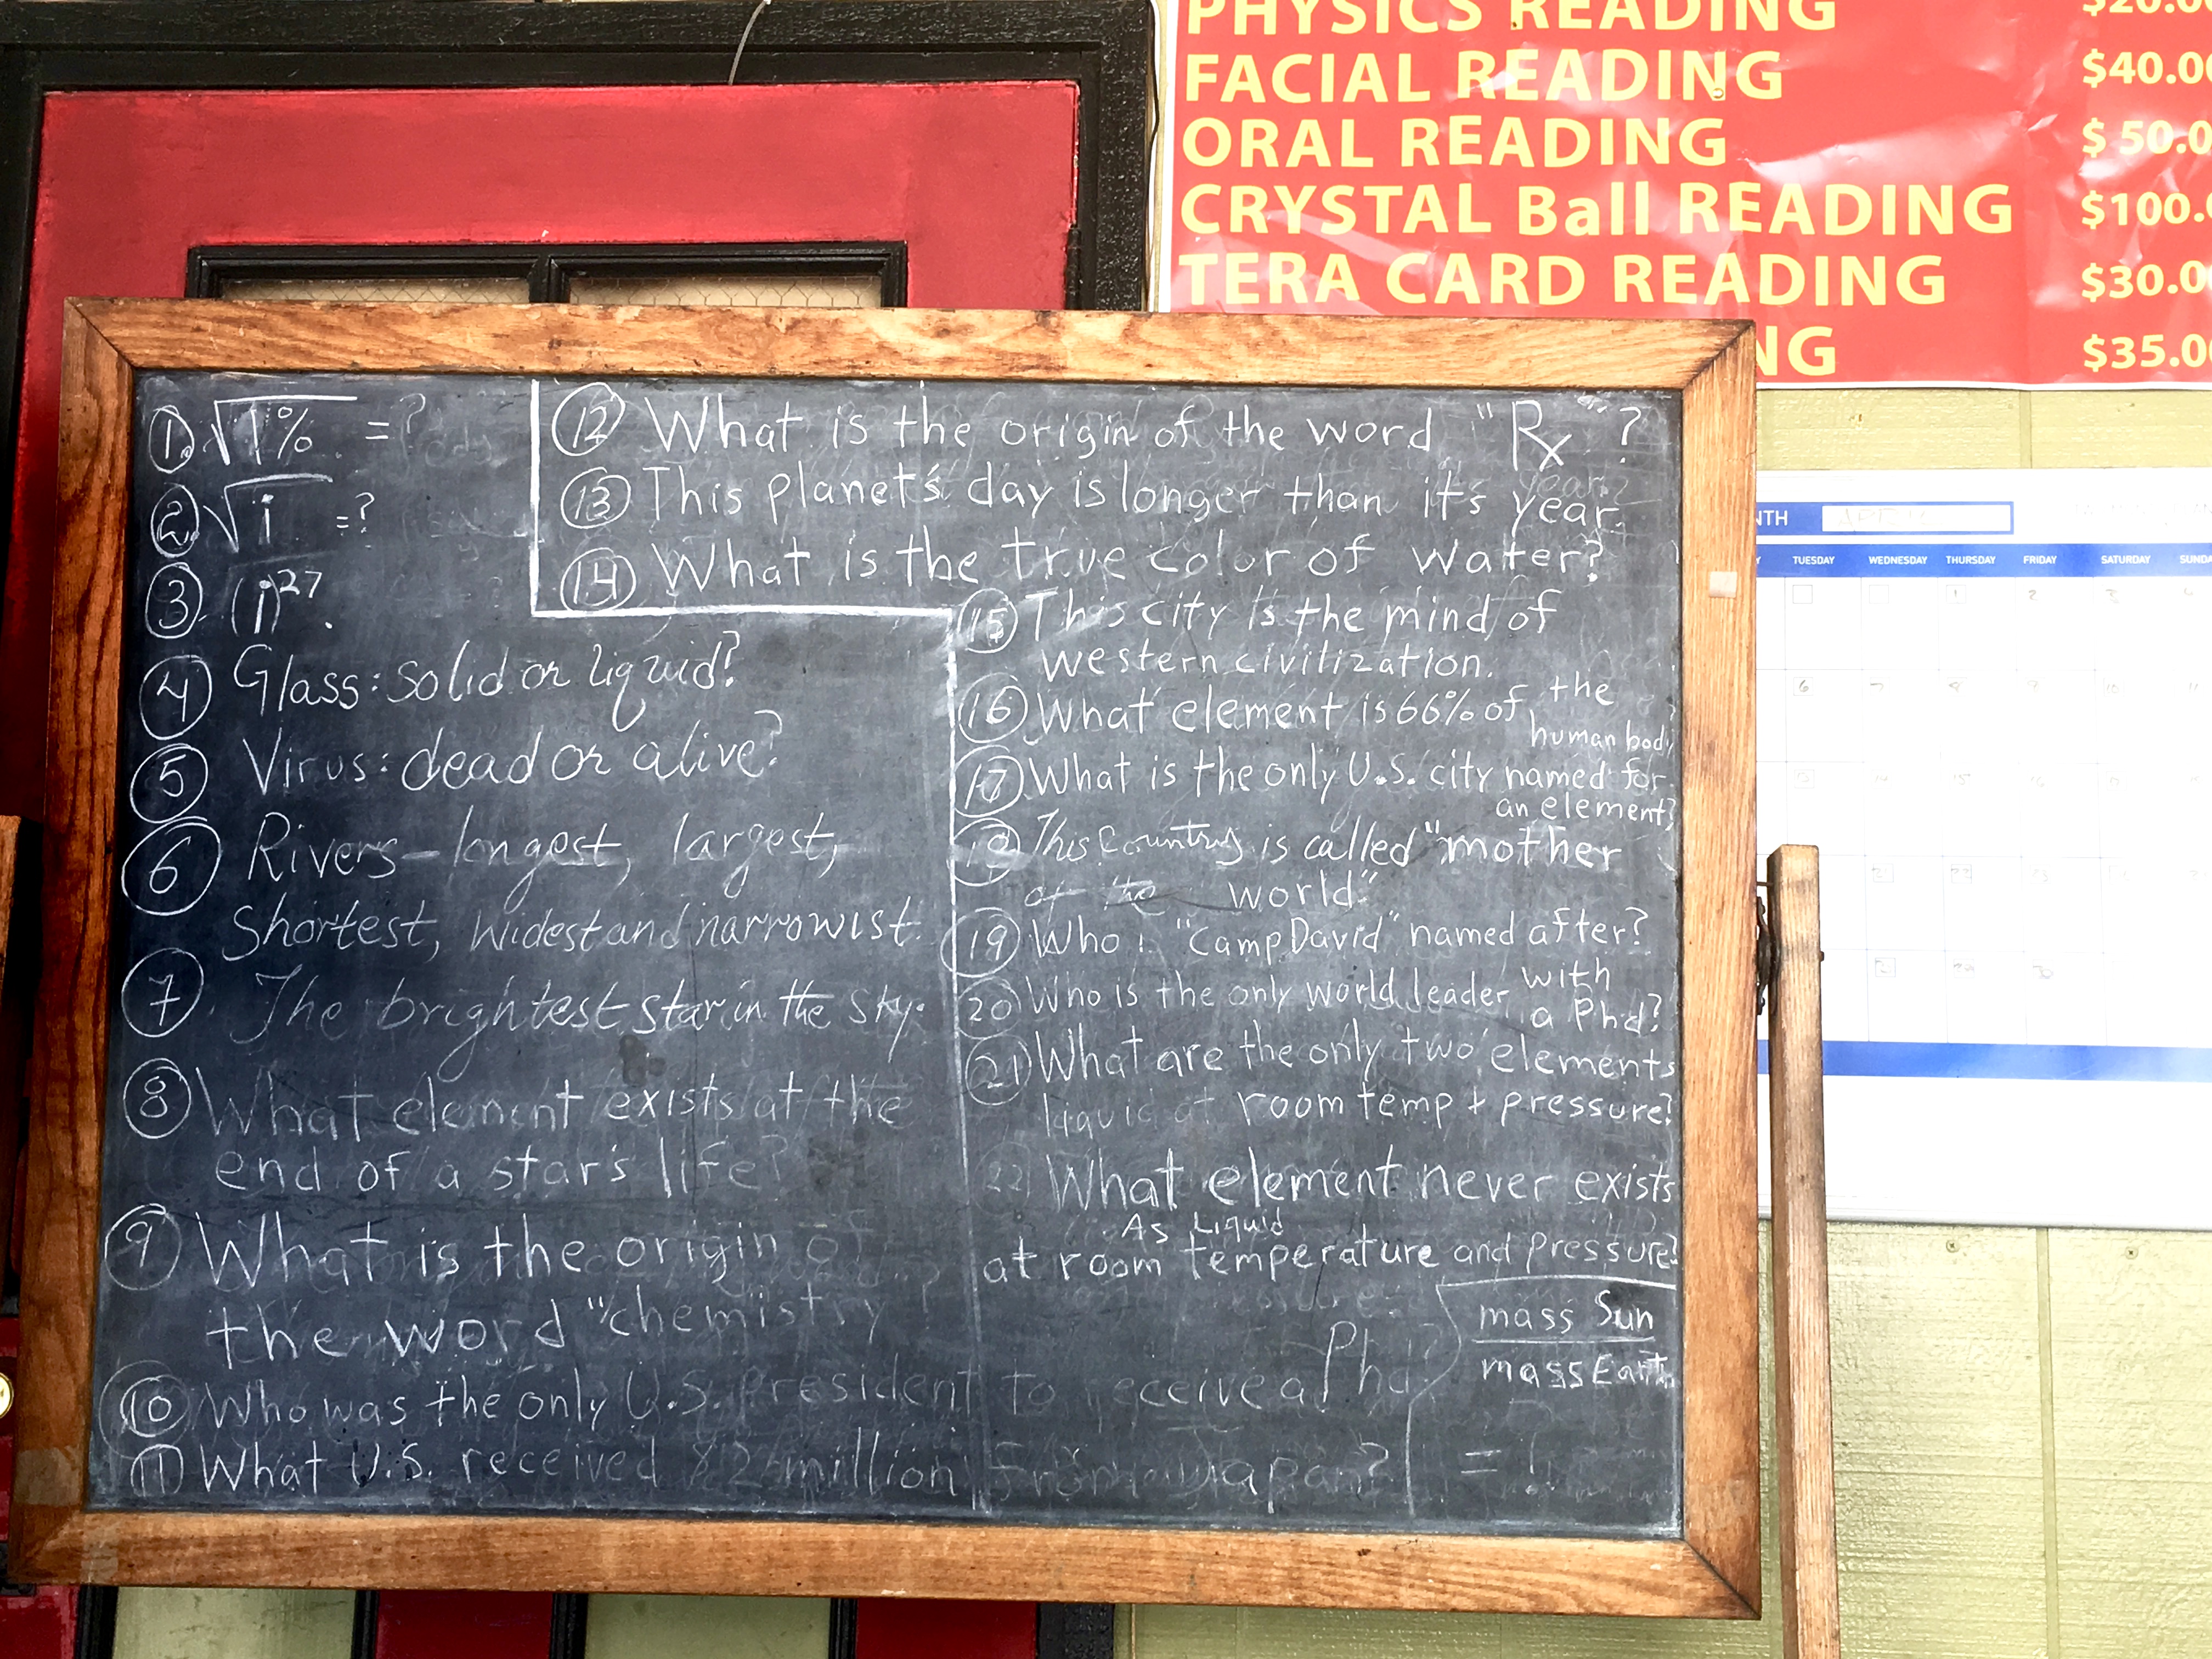 PHYSICS READING $20.0
FACIAL READING $40.00
ORAL READING $ 50.0
CRYSTAL Ball READING $100.
TERA CARD READING $30.0
NG $35.0
1. √1% = ?
2. √i = ?
3 (i)²⁷.
4 Glass: solid or liquid?
5 Virus: dead or alive?
6 Rivers-longest, largest,
shortest, widest and narrowist.
7. The brightest star in the sky.
8 What element exists at the
end of a star's life?
9 What is the origin of
the word "chemistry
10 Who was the only U.S. president to receive a Phd
11 What U.S. received $2 million from Japan?
12 What is the origin of the word "Rx" ?
13 This planet's day is longer than it's year.
14 What is the true color of water?
15 This city is the mind of
western civilization.
16 What element is 66% of the
human body
17 What is the only U.S. city named for
an element?
18 This country is called "mother
of the world"
19 Who is "Camp David" named after?
20 Who is the only world leader with
a Phd?
21 What are the only two elements
liquid at room temp + pressure?
22 What element never exists
As Liquid
at room temperature and pressure?
mass Sun
mass Earth
= ?
NTH
TUESDAY WEDNESDAY THURSDAY FRIDAY SATURDAY SUND